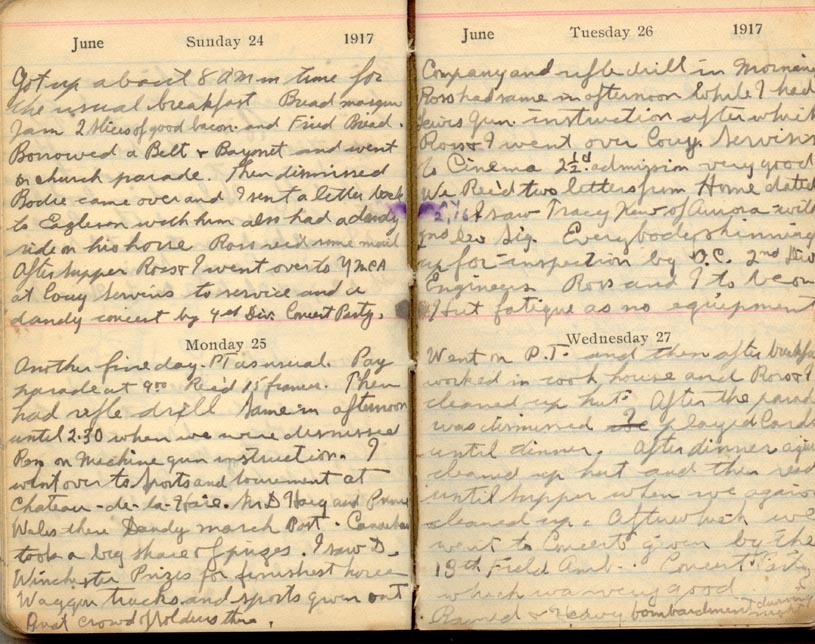 June Sunday 24 1917
Got up about 8 AM in time for
the usual breakfast Bread margim
Jam 2 slices of good bacon and Fried Bread.
Borrowed a Belt & Bayonet and went
on church parade. Then dismissed
Bodie came over and I sent a letter back
to Eagleson with him also had a dandy
ride on his horse Ross recd some mail
After supper Ross & I went over to YMCA
at Couy Servins to service and a
dandy concert by 4th Div. Concert Party.
Monday 25
Another fine day. PT as usual. Pay
parade at 9.00 Recd 15 francs. Then
had rifle drill Same in afternoon
until 2.30 when we were dismissed
Ross on Machine gun instruction. I
went over to Sports and tournement at
Chateau-de-la-Haie. Sir D Haig and Prince
Wales there Dandy march Past. Canadians
took a big share of prizes. I saw D.
Winchester Prizes for finnishest horse
Waggon trucks and sports given out
And crowd of soldiers there.
June Tuesday 26 1917
Company and rifle drill in Morning
Ross had same in afternoon While I had
Lewis Gun instruction after which
Ross & I went over Couy. Servins
to Cinema 2½d. admission very good
We Rec'd two letters from Home dated
I saw Tracy New of Aurora with
2nd Div Sig. Everybody shinning
up for inspection by O.C. 2nd Div
Engineers Ross and I to be on
Hut fatigue as no equipment
Wednesday 27
Went on P.T. and then after breakfas
worked in cook house and Ross & I
cleaned up hut. After the parade
was dismissed I played Cards
until dinner. After dinner again
cleaned up hut and then read
until supper when we again
cleaned up. Afterwhich we
went to Concert given by the
13th Field Amb. Concert Party
which was very good
Rained & Heavy bombardment during
night